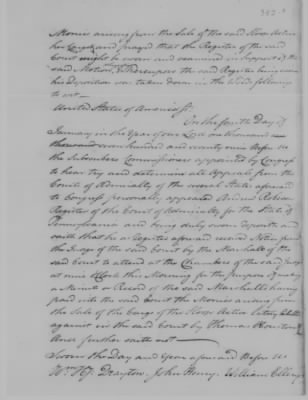 Monies arising from the Sale of the said Sloop Active
her and prayed that the Register of the said
Court might be sworn and examined in Support of the
said Motion, & Thereupon the said Register being sworn
his Deposition was taken down in the Words following
to wit —
United States of America Ss.
On the fourth Day of
January in the Year of our Lord one thousand
thousand seven hundred and seventy nine Before Us
the Subscribers Commissioners appointed by Congress
to hear try and determine all Appeals from the
Courts of Admiralty of the several States
to Congress personally appeared Andrew Robeson
Register of the Court of Admiralty for the State of
Pennsylvania and being duly sworn deposeth and
saith that he as Register aforesaid received Notice from
the Judge of the said Court by the Marshall of the
said Court to attend at the Chambers of the said Judge
at nine oClock this Morning for the purpose of making
a Minute or Record of the said Marshall's having
paid into the said Court the Monies arising from
the Sale of the Cargo of the Sloop Active lately libelled
against in the said Court by Thomas Houston
And further saith not —
Sworn the Day and Year aforesaid Before Us
Wm. Hy. Drayton, John Henry, William Ellery